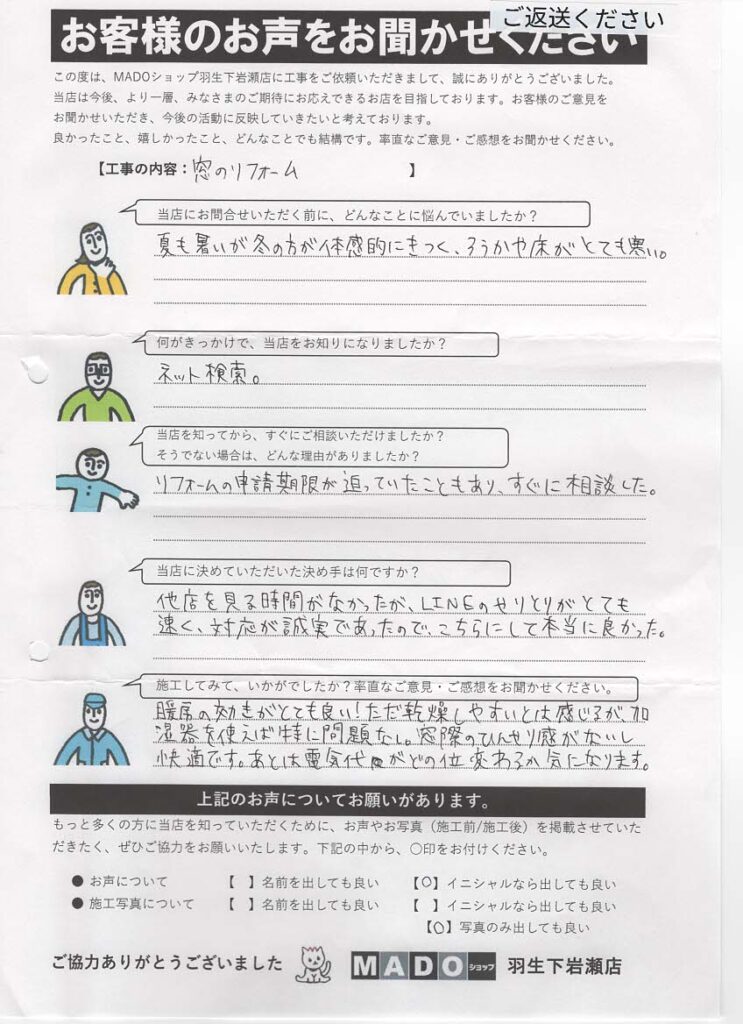 ご返送ください
お客様のお声をお聞かせください
この度は、MADOショップ羽生下岩瀬店に工事をご依頼いただきまして、誠にありがとうございました。
当店は今後、より一層、みなさまのご期待にお応えできるお店を目指しております。お客様のご意見を
お聞かせいただき、今後の活動に反映していきたいと考えております。
良かったこと、嬉しかったこと、どんなことでも結構です。率直なご意見・ご感想をお聞かせください。
【工事の内容：窓のリフォーム 】
当店にお問合せいただく前に、どんなことに悩んでいましたか？
夏も暑いが冬の方が体感的にきつく、ろうかや床がとても寒い。
何がきっかけで、当店をお知りになりましたか？
ネット検索。
当店を知ってから、すぐにご相談いただけましたか？
そうでない場合は、どんな理由がありましたか？
リフォームの申請期限が迫っていたこともあり、すぐに相談した。
当店に決めていただいた決め手は何ですか？
他店を見る時間がなかったが、LINEのやりとりがとても
速く、対応が誠実であったので、こちらにして本当に良かった。
施工してみて、いかがでしたか？率直なご意見・ご感想をお聞かせください。
暖房の効きがとても良い！ただ乾燥しやすいとは感じるが、加
湿器を使えば特に問題なし。窓際のひんやり感がないし
快適です。あとは電気代がどの位変わるか気になります。
上記のお声についてお願いがあります。
もっと多くの方に当店を知っていただくために、お声やお写真（施工前/施工後）を掲載させていた
だきたく、ぜひご協力をお願いいたします。下記の中から、〇印をお付けください。
● お声について 【 】名前を出しても良い 【〇】イニシャルなら出しても良い
● 施工写真について 【 】名前を出しても良い 【 】イニシャルなら出しても良い
【〇】写真のみ出しても良い
ご協力ありがとうございました MADOショップ 羽生下岩瀬店